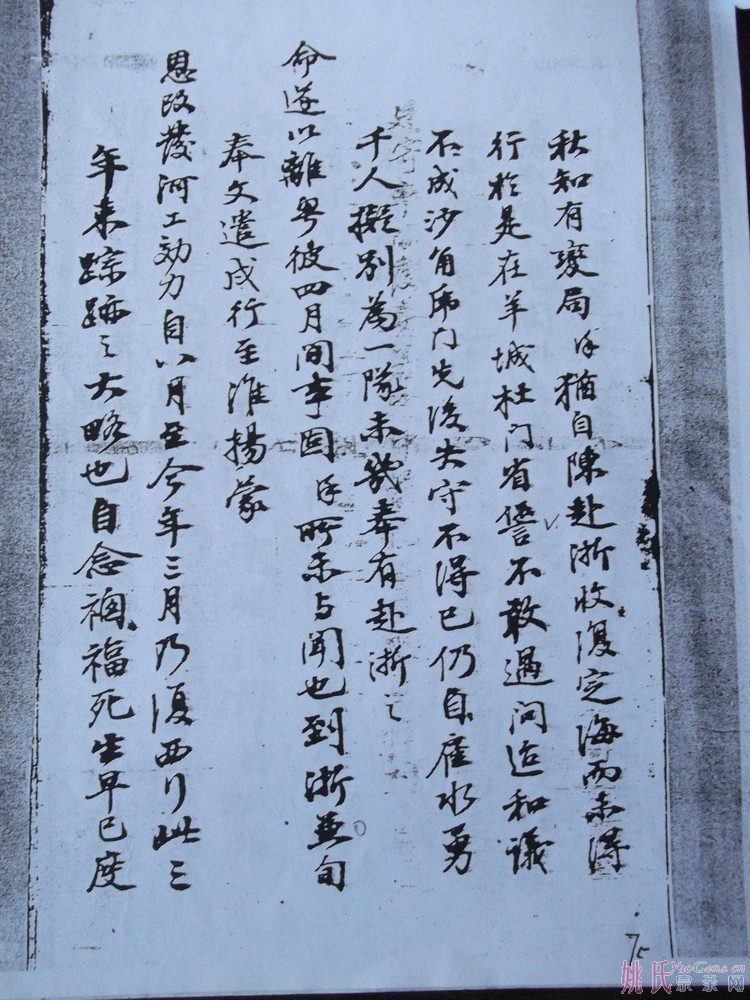 秋知有變局僕猶自陳赴浙收復定海而未得
行於是在羊城杜門省愆不敢過問迨和議
不成沙角虎門先後失守不得已仍自雇水勇
千人擬別為一隊未幾奉有赴浙之
命遂以離粵彼四月間事固僕所未与聞也到浙兼旬
奉文遣戍行至淮揚蒙
恩改發河工効力自八月至今年三月乃復西行此三
年来踪跡之大略也自念禍福死生早已度
75
姚氏宗亲网
YaoGens.cn